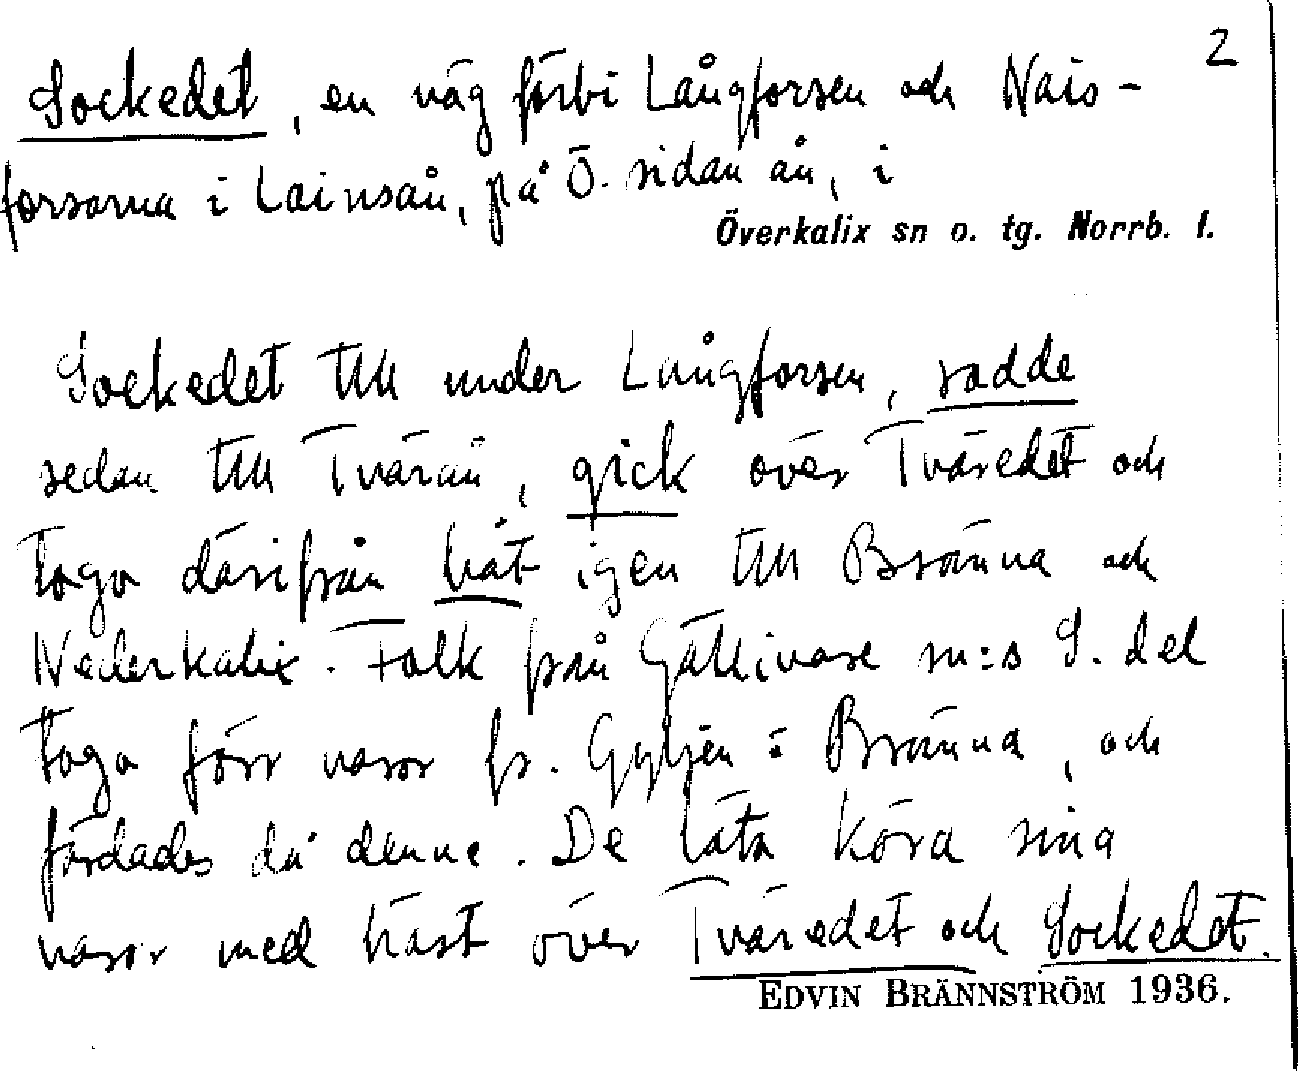 2
Sockedet, en väg förbi Långforsen och Nais-
forsarna i Lainsån, på Ö. sidan ån, i
Överkalix sn o. tg. Norrb. l.
Sockedet till under Långforsen, rodde
sedan till Tvärån, gick över Tväredet och
togo därifrån båt igen till Bränna och
Nederkalix. Folk från Gällivare sn:s S. del
togo förr varor fr. Gyljen i Bränna, och
färdades då denne. De läto köra sina
varor med häst över Tväredet och Sockedet.
EDVIN BRÄNNSTRÖM 1936.